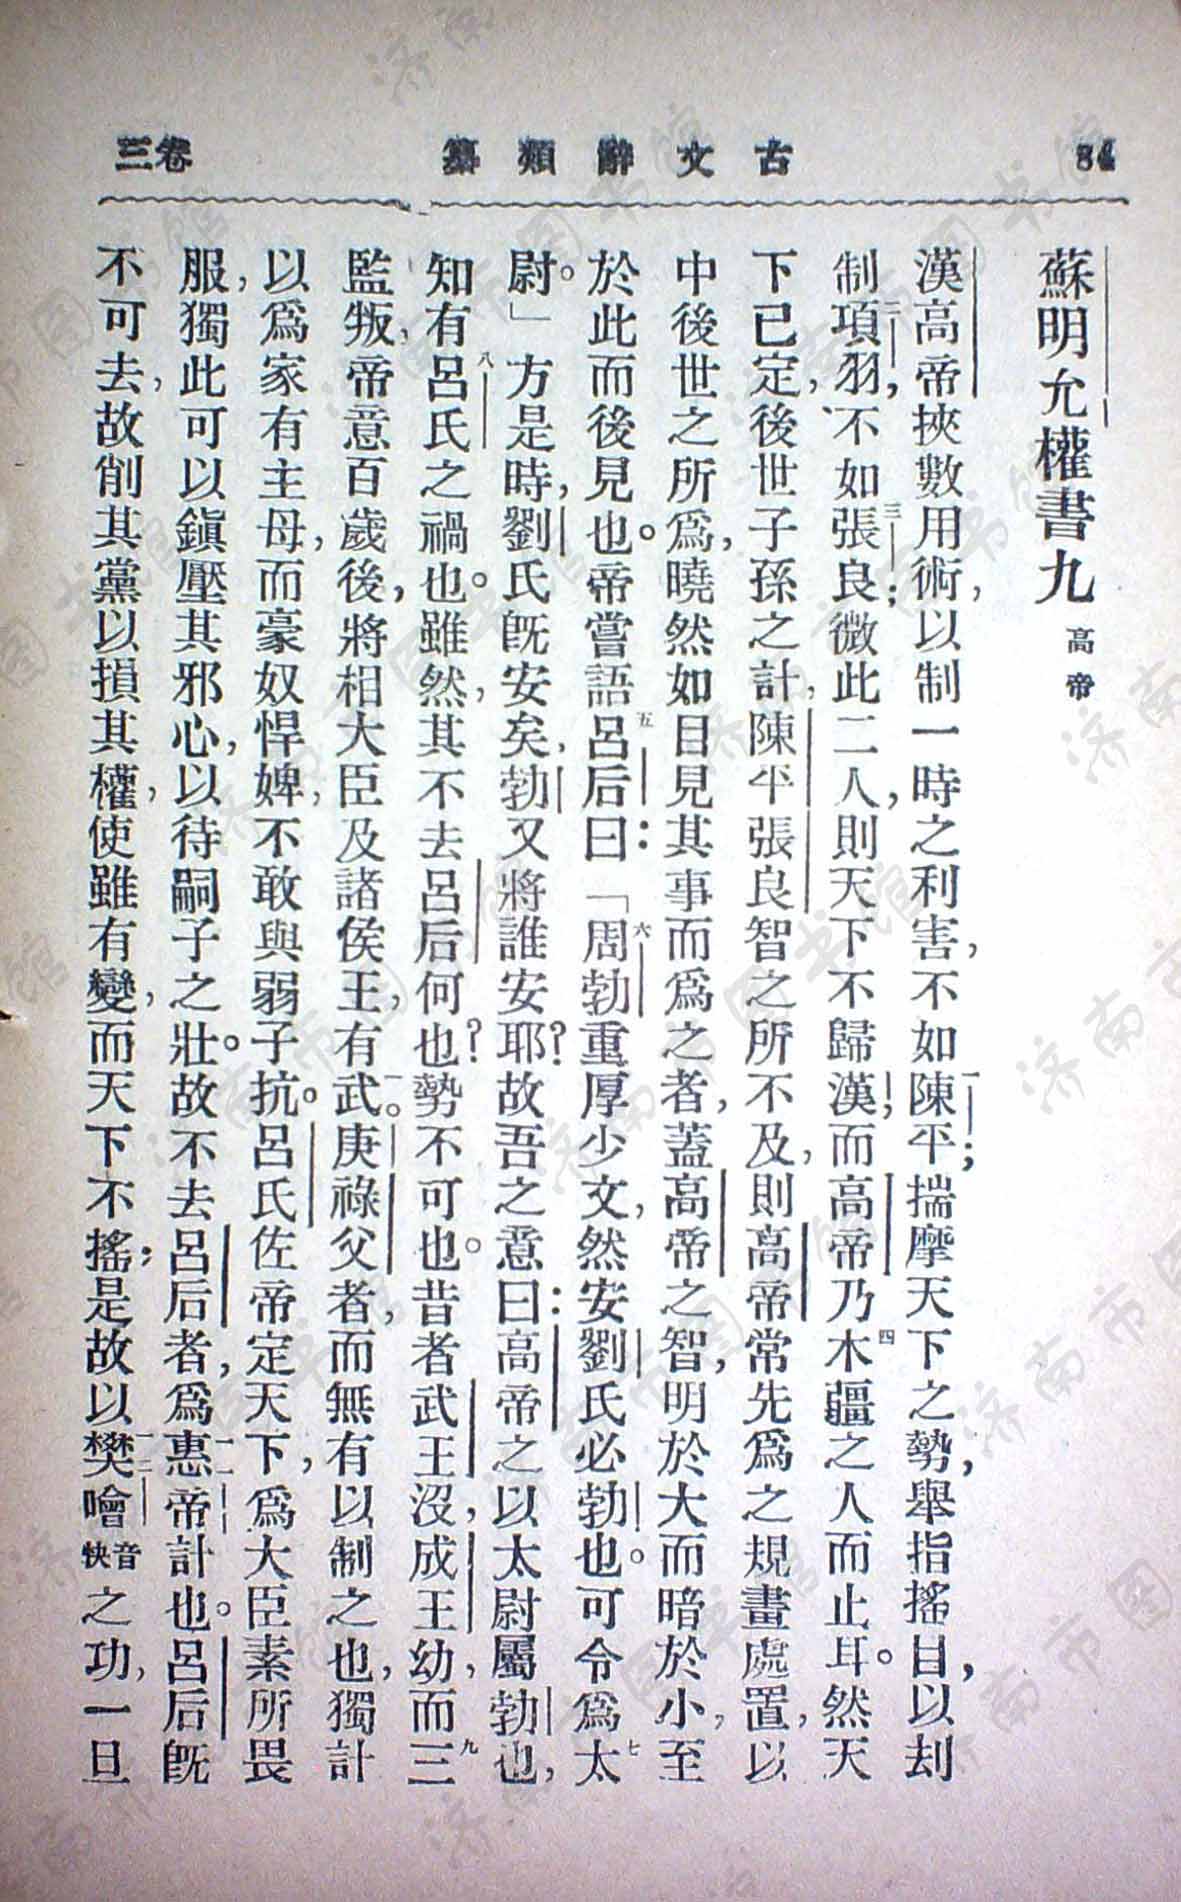 84
古文辭類纂
卷三
蘇明允權書九 高帝
漢高帝挾數用術，以制一時之利害，不如陳平；揣摩天下之勢，舉指搖目，以刦
制項羽，不如張良；微此二人，則天下不歸漢，而高帝乃木疆之人而止耳。然天
下已定，後世子孫之計，陳平張良智之所不及，則高帝常先爲之規畫處置，以
中後世之所爲，曉然如目見其事而爲之者，蓋高帝之智，明於大而暗於小，至
於此而後見也。帝嘗語呂后曰：「周勃重厚少文，然安劉氏必勃也。可令爲太
尉。」方是時，劉氏旣安矣，勃又將誰安耶？故吾之意曰：高帝之以太尉屬勃也，
知有呂氏之禍也。雖然，其不去呂后何也？勢不可也。昔者武王沒，成王幼，而三
監叛，帝意百歲後，將相大臣及諸侯王，有武庚祿父者，而無有以制之也，獨計
以爲家有主母，而豪奴悍婢，不敢與弱子抗。呂氏佐帝定天下，爲大臣素所畏
服，獨此可以鎭壓其邪心，以待嗣子之壯。故不去呂后者，爲惠帝計也。呂后旣
不可去，故削其黨以損其權，使雖有變，而天下不搖；是故以樊噲音快之功，一旦
濟南市图书馆